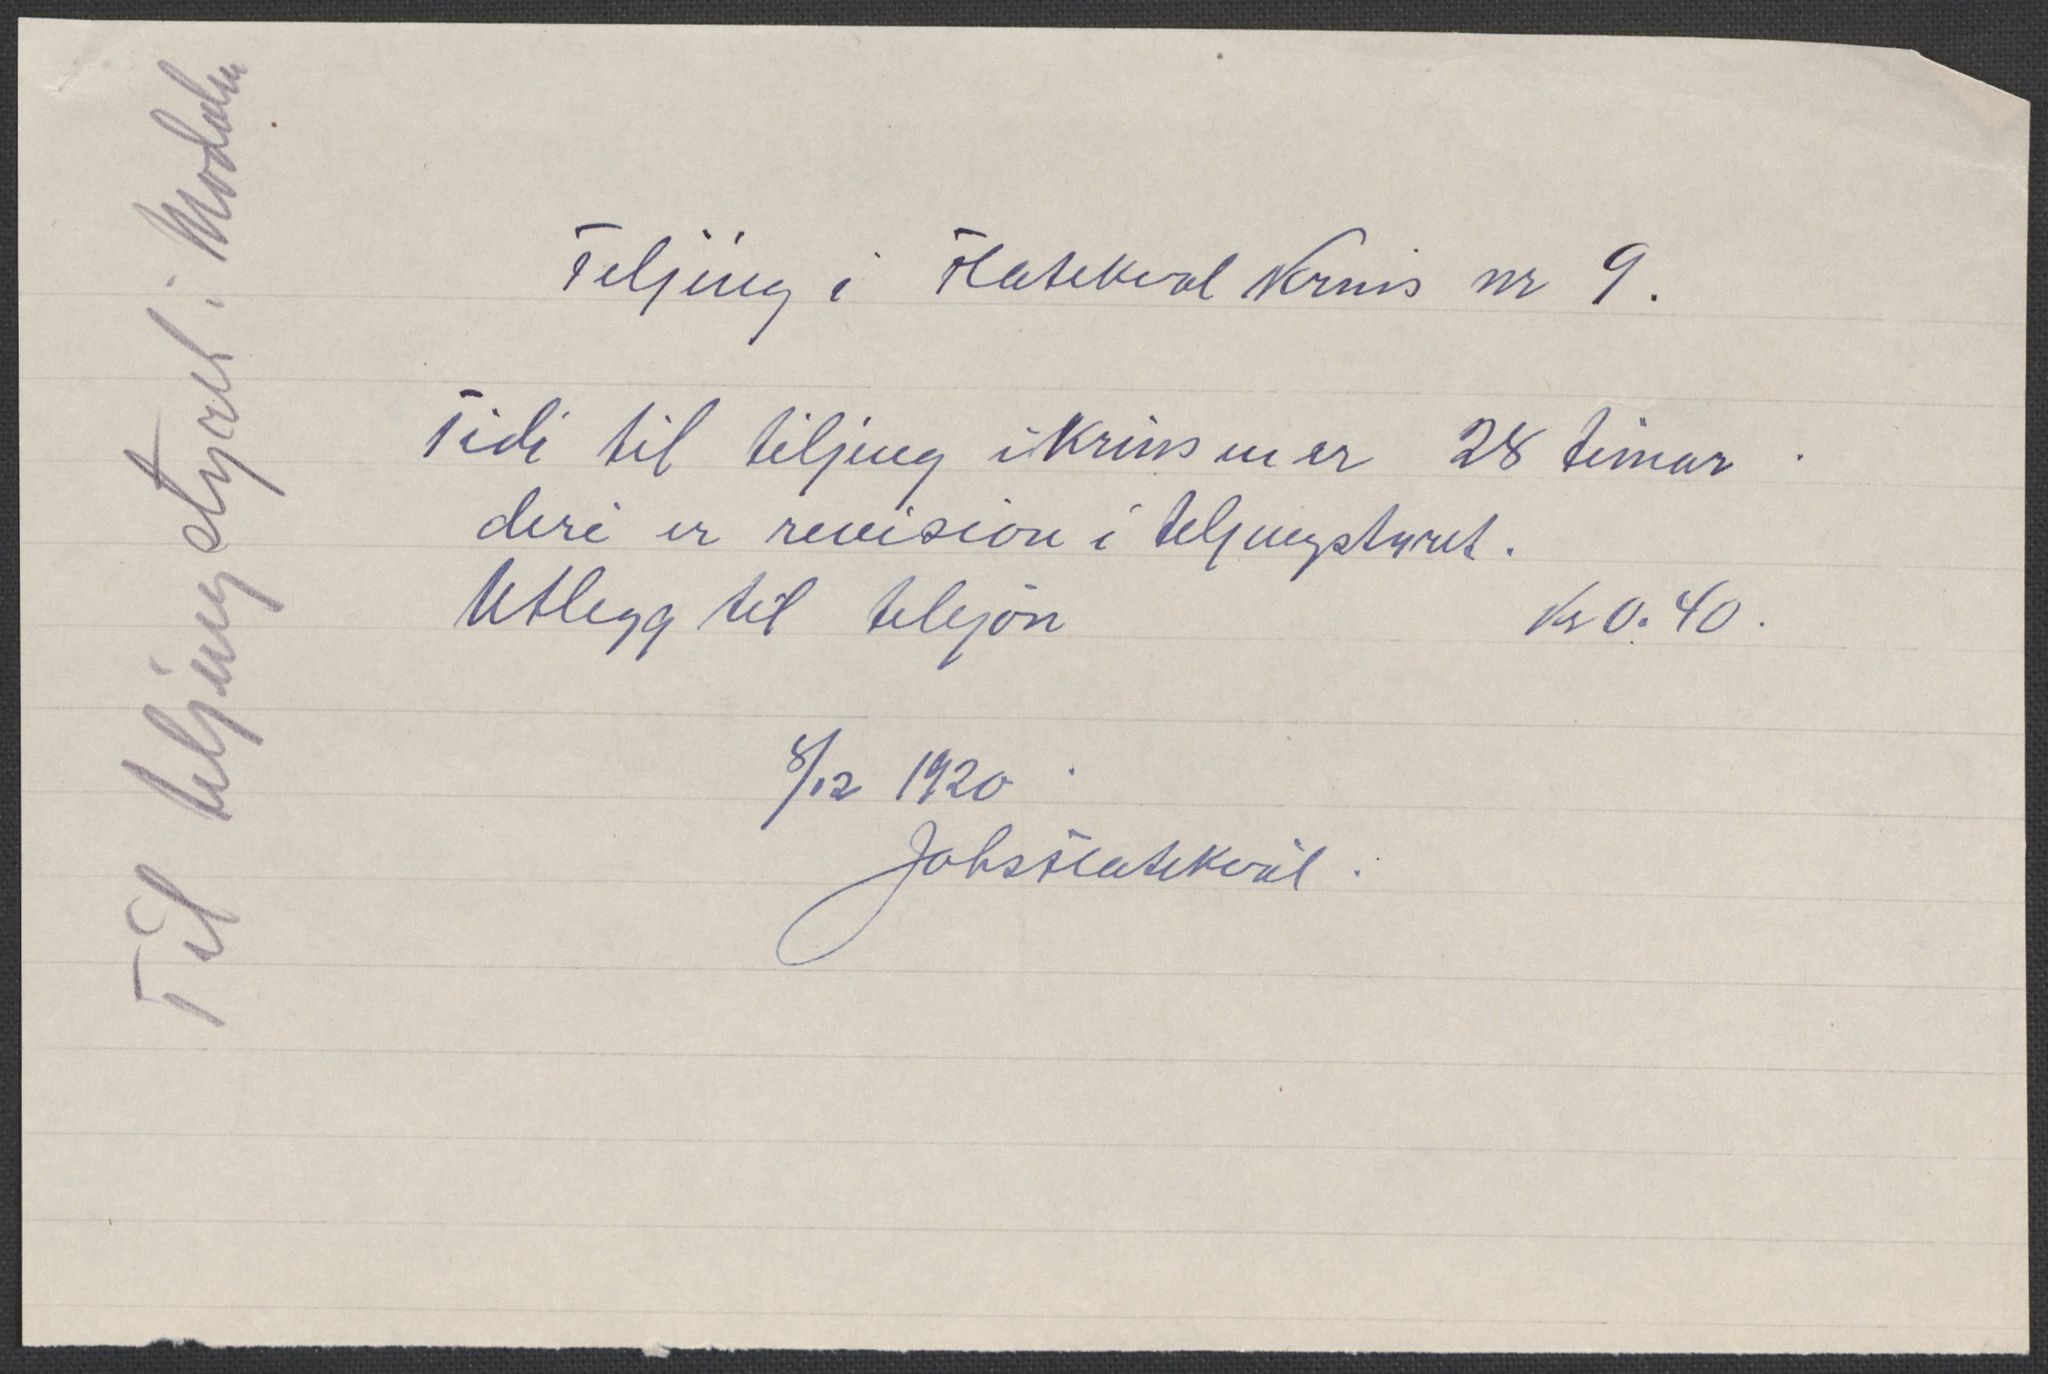 Til teljingstyret i Modalen
Teljing i Flatekval Krins nr 9.
Tidi til teljing i Krinsen er 28 timar.
deri er revision i teljingstyret.
Utlegg til telefon Kr 0.40.
8/12 1920.
Johs Flatekvål.